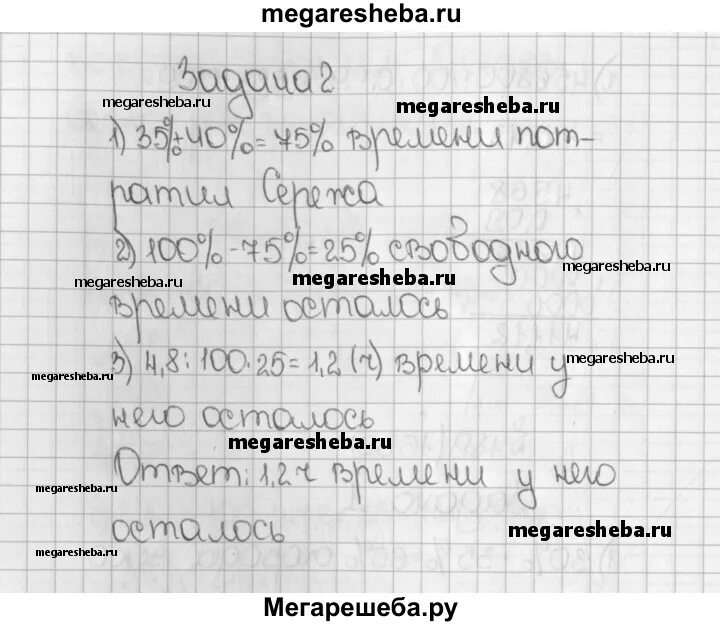 megaresheba.ru
Задача 2
megaresheba.ru
megaresheba.ru
1) 35%+40%=75% времени пот-
ратил Сережа
2) 100%-75%=25% свободного
megaresheba.ru
megaresheba.ru
megaresheba.ru
времени осталось
3) 4,8:100·25=1,2 (ч) времени у
megaresheba.ru
megaresheba.ru
него осталось
megaresheba.ru
Ответ: 1,2 ч времени у него
megaresheba.ru
осталось
megaresheba.ru
megaresheba.ru
Мегарешеба.ру